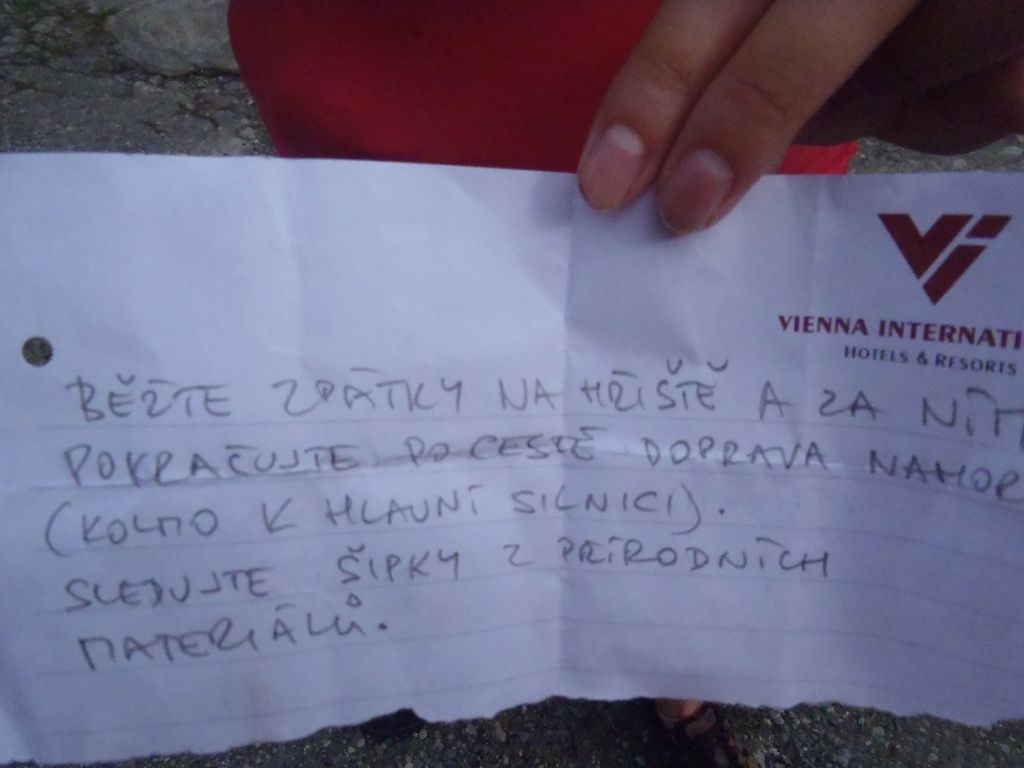 VIENNA INTERNATI
HOTELS & RESORTS
BĚŽTE ZPÁTKY NA HŘIŠTĚ A ZA NÍM
POKRAČUJTE PO CESTĚ DOPRAVA NAHOR
(KOLMO K HLAVNÍ SILNICI).
SLEDUJTE ŠIPKY Z PŘÍRODNÍCH
MATERIÁLŮ.